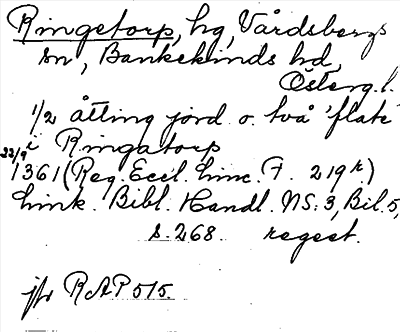 Ringetorp, hg, Vårdsbergs
sn, Bankekinds hd,
Österg.l.
1/2 åtting jord o. två 'flate'
i Ringatorp
22/9 1361 (Reg. Eccl. Linc. F. 219r)
Link. Bibl. Handl. NS:3, Bil. 5,
s. 268. regest.
jfr RAP 515.